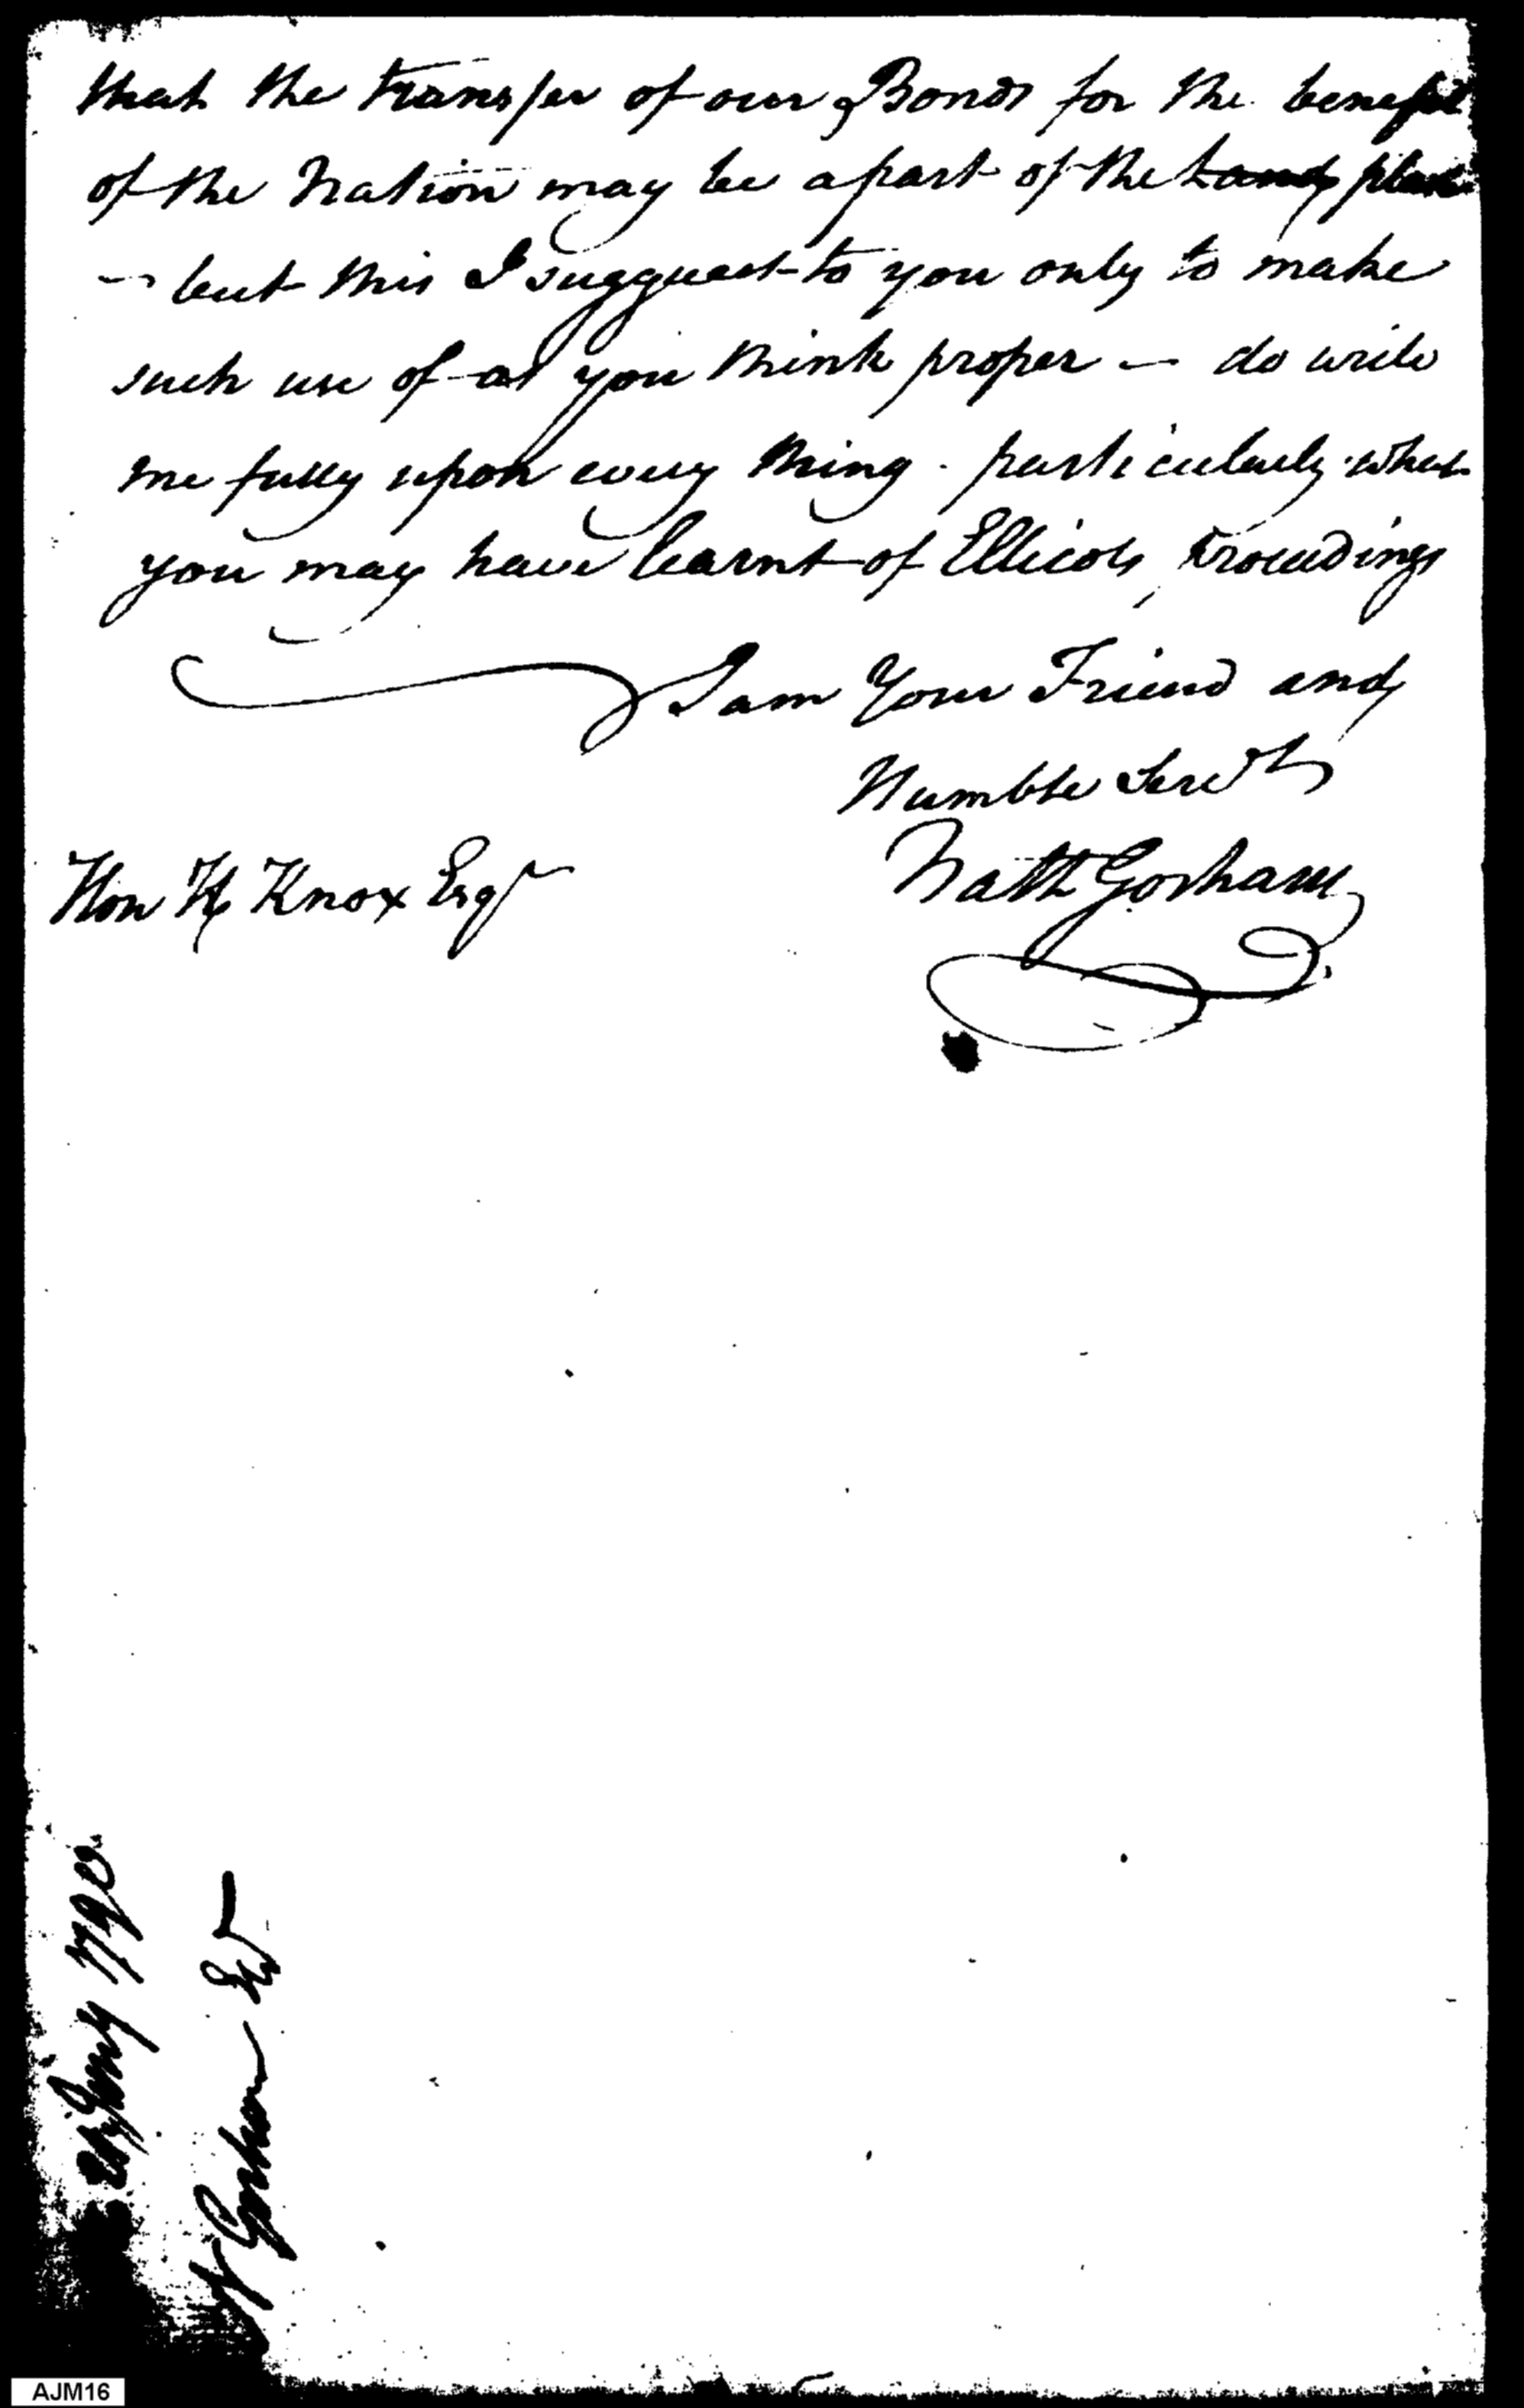 that the transfer of our Bonds for the benefit
of the Nation may be a part of the Land plan
— but this I sugguest to you only to make
such use of as you think proper — do write
me fully upon every thing . particularly what
you may have learnt of Ellicots Proceedings
I am Your Friend and
Humble Servt
Nath Gorham
Hon H Knox Esqr
Jany 1790
N Gorham Esqr
AJM16